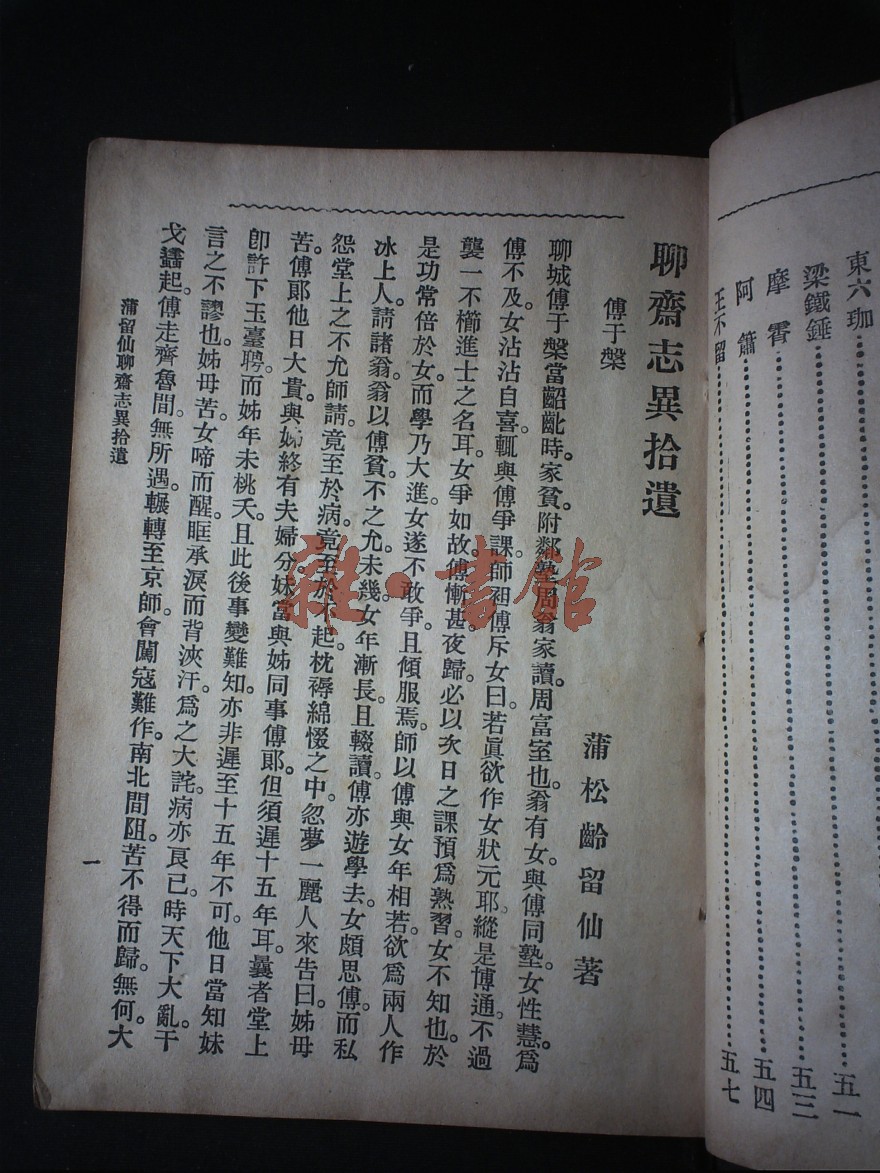 東六珈……五一
梁鐵錘……五三
摩霄……五四
阿簫……五七
王不留
聊齋志異拾遺
蒲松齡留仙著
傅于槃
聊城傅于槃當齠齔時。家貧。附鄰塾周翁家讀。周富室也。翁有女。與傅同塾。女性慧。爲
傅不及。女沾沾自喜。輒與傅爭課。師袒傅斥女曰。若眞欲作女狀元耶。縱是博通。不過
襲一不櫛進士之名耳。女爭如故。傅慚甚。夜歸。必以次日之課預爲熟習。女不知也。於
是功常倍於女。而學乃大進。女遂不敢爭。且傾服焉。師以傅與女年相若。欲爲兩人作
冰上人。請諸翁。翁以傅貧不之允。未幾。女年漸長。且輟讀。傅亦遊學去。女頗思傅。而私
怨堂上之不允師請。竟至於病。竟至於不起。枕褥綿惙之中。忽夢一麗人來告曰。姊毋
苦。傅郎他日大貴。與姊終有夫婦分。妹當與姊同事傅郎。但須遲十五年耳。曩者堂上
卽許下玉臺聘。而姊年未桃夭。且此後事變難知。亦非遲至十五年不可。他日當知妹
言之不謬也。姊毋苦。女啼而醒。眶承淚而背浹汗。爲之大詫。病亦良已。時天下大亂。干
戈蠭起。傅走齊魯間。無所遇。輾轉至京師。會闖寇難作。南北間阻。苦不得而歸。無何。大
蒲留仙聊齋志異拾遺
一
雜·書館